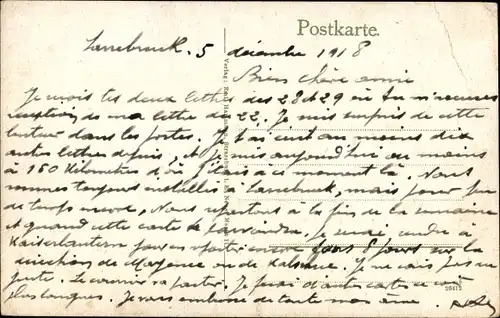 Postkarte.
Sarrebruck. 5 décembre 1918
Bien chère amie
Je reçois tes deux lettres des 28 et 29 où tu m'accuses
réception de ma lettre du 22. Je suis surpris de cette
lenteur dans les postes. Je t'ai écrit au moins dix
autres lettres depuis, et je suis aujourd'hui au moins
à 150 Kilomètres d'où j'étais à ce moment là. Nous
sommes toujours installés à Sarrebruck, mais pour peu
de temps encore. Nous repartons à la fin de la semaine
et quand cette carte te parviendra, je serai rendu à
Kaiserlautern pour en repartir encore sous 8 jours sur la
direction de Mayence ou de Je ne sais pas au
juste. Le courrier va partir. Je ferai d'autres cartes ce soir
plus longues. Je vous embrasse de toute mon âme.